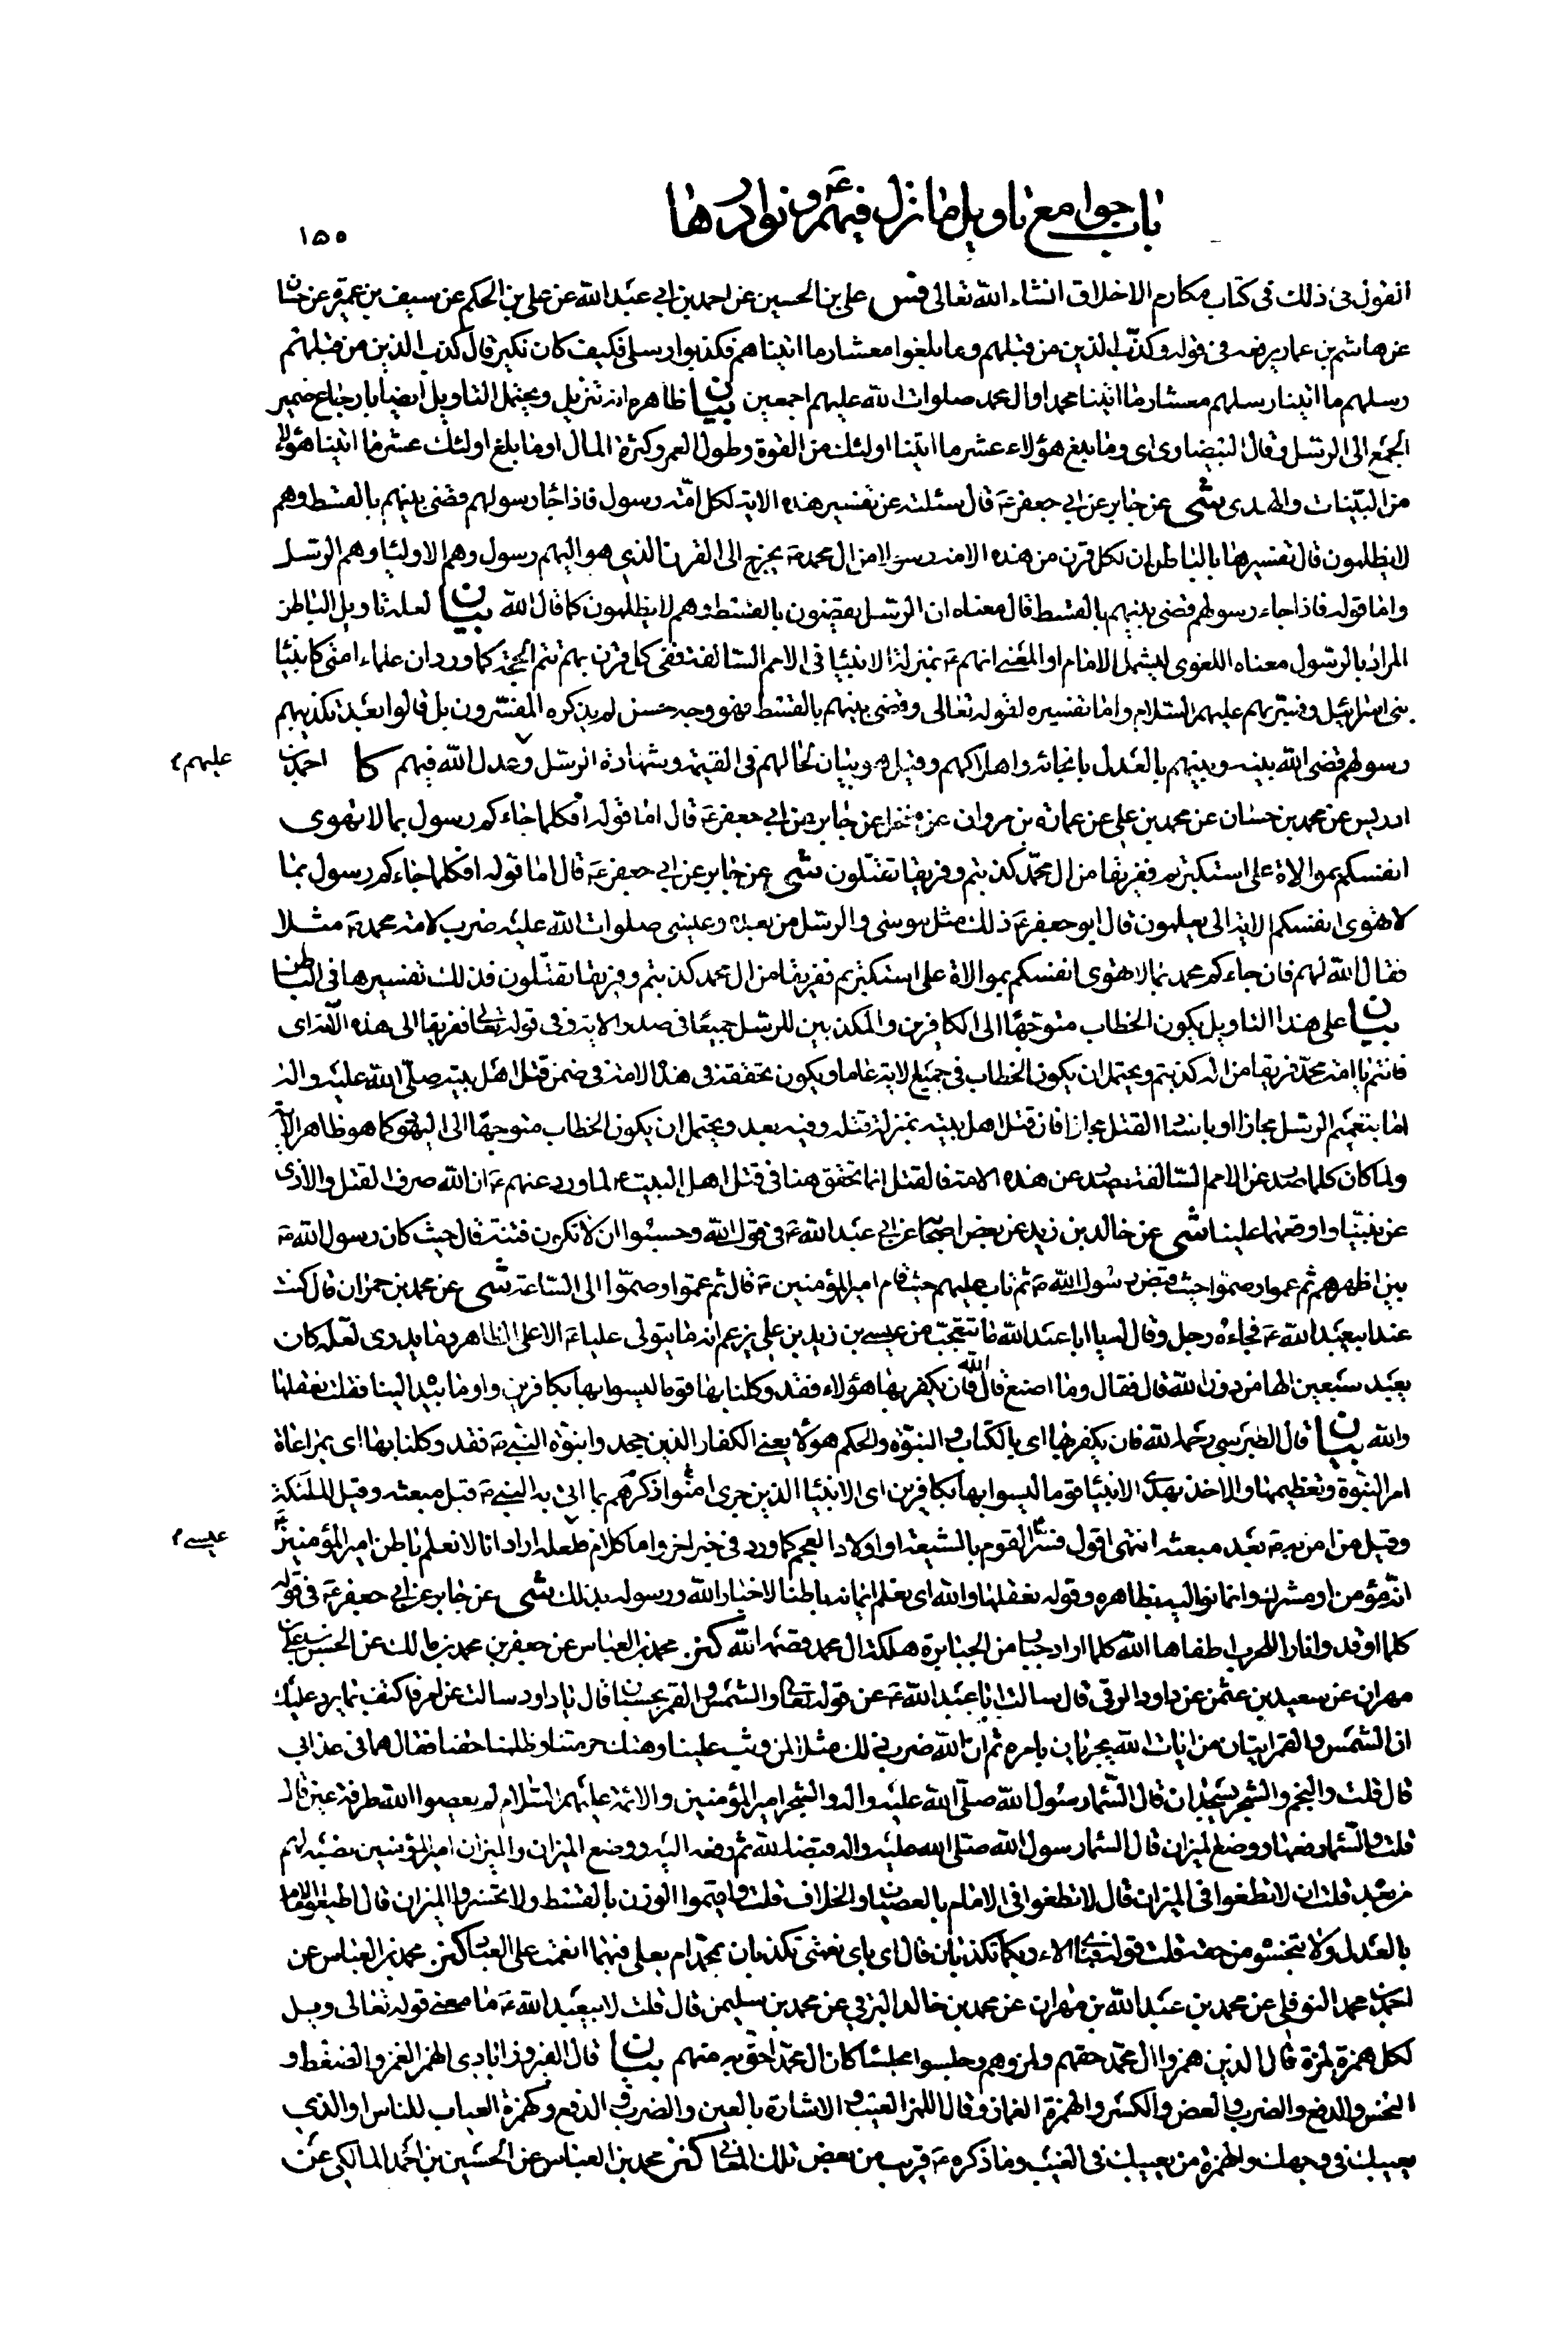 باب جوامع تاويل ما نزل فيهم ع و نوادرها
١٥٥
القول فى ذلك فى كتاب مكارم الاخلاق انشاء الله تعالى فس على بن الحسين عن احمد بن ابى عبد الله عن على بن الحكم عن سيف بن عميرة عن حسان
عن هاشم بن عمار يرفعه فى قوله و كذب الذين من قبلهم و ما بلغوا معشار ما اتيناهم فكذبوا رسلى فكيف كان نكير قال كذب الذين من قبلهم
رسلهم ما اتينا رسلهم معشار ما اتينا محمدا و ال محمد صلوات الله عليهم اجمعين بيان ظاهره انه تنزيل و يحتمل التاويل ايضا بارجاع ضمير
الجمع الى الرسل و قال البيضاوى اى و ما بلغ هؤلاء عشر ما اتينا اولئك من القوة و طول العمر و كثرة المال او ما بلغ اولئك عشر ما اتينا هؤلاء
من البينات و الهدى شى عن جابر عن ابى جعفر ع قال سئلته عن تفسير هذه الاية لكل امة رسول فاذا جا رسولهم قضى بينهم بالقسط و هم
لا يظلمون قال تفسيرها بالباطن ان لكل قرن من هذه الامة رسولا من ال محمد ص يخرج الى القرن الذى هو اليهم رسول و هم الاولياء و هم الرسل
و اما قوله فاذا جاء رسولهم قضى بينهم بالقسط قال معناه ان الرسل يقضون بالقسط و هم لا يظلمون كما قال الله بيان لعله تاويل الباطن
المراد بالرسول معناه اللغوى ليشمل الامام او المعنى انهم ع بمنزلة الانبيا فى الامم السالفة ففى كل قرن بهم تتم الحجة كما ورد ان علماء امتى كانبيا
بنى اسرائيل و فسر بهم عليهم السلام و اما تفسيره لقوله تعالى و قضى بينهم بالقسط فهو وجه حسن لم يذكره المفسرون بل قالوا بعد تكذيبهم
رسولهم قضى الله بينه و بينهم بالعدل بانجائه و اهلاكهم و قيل هو بيان لحالهم فى القيمة و شهادة الرسل و عدل الله فيهم كا احمد بن
عليهم ع
ادريس عن محمد بن حسان عن محمد بن على عن عمار بن مروان عن منخل عن جابر عن ابى جعفر ع قال اما قوله افكلما جاءكم رسول بما لا تهوى
انفسكم بموالاة على استكبرتم ففريقا من ال محمد كذبتم و فريقا تقتلون شى عن جابر عن ابى جعفر ع قال اما قوله افكلما جاءكم رسول بما
لا تهوى انفسكم الاية الى يعلمون قال ابو جعفر ع ذلك مثل موسى و الرسل من بعده و عيسى صلوات الله عليه ضرب لامة محمد ص مثلا
فقال الله لهم فان جاءكم محمد بما لا تهوى انفسكم بموالاة على استكبرتم ففريقا من ال محمد كذبتم و فريقا تقتلون فذلك تفسيرها فى الباطن
بيان على هذا التاويل يكون الخطاب متوجها الى الكافرين و المكذبين للرسل جميعا فى صدر الاية و فى قوله تعالى ففريقا الى هذه الامة اى
فانتم يا امة محمد فريقا من اله كذبتم و يحتمل ان يكون الخطاب فى جميع الاية عاما و يكون تحققه فى هذه الامة فى ضمن قتل اهل بيته صلى الله عليه و اله
اما بتعميم الرسل مجازا او باسناد القتل مجازا فان قتل اهل بيته بمنزلة قتله و فيه بعد و يحتمل ان يكون الخطاب متوجها الى اليهود كما هو ظاهر الاية
و لما كان كلما صدر عن الامم السالفة يصدر عن هذه الامة فالقتل انما تحقق هنا فى قتل اهل البيت ع لما ورد عنهم ع ان الله صرف القتل و الاذى
عن نبينا و اوقعهما علينا شى عن خالد بن يزيد عن بعض اصحابنا عن ابى عبد الله ع فى قول الله و حسبوا ان لا تكون فتنة قال حيث كان رسول الله ص
بين اظهرهم ثم عموا و صموا حيث قبض رسول الله ص ثم تاب عليهم حيث قام امير المؤمنين ع قال ثم عموا و صموا الى الساعة شى عن محمد بن حمران قال كنت
عند ابيعبد الله ع فجاءه رجل و قال له يا ابا عبد الله ما تتعجب من عيسى بن زيد بن على يزعم انه ما يتولى عليا ع الا على الظاهر و ما يدرى لعله كان
يعبد سبعين الها من دون الله قال فقال و ما اصنع قال الله فان يكفر بها هؤلاء فقد وكلنا بها قوما ليسوا بها بكافرين و اوما بيده الينا فقلت نعقلها
و الله بيان قال الطبرسى رحمه الله فان يكفر بها اى بالكتاب و النبوة و الحكم هؤلا يعنى الكفار الذين جحدوا نبوة النبى ص فقد وكلنا بها اى بمراعاة
امر النبوة و تعظيمها و الاخذ بهدى الانبيا قوما ليسوا بها بكافرين اى الانبيا الذين جرى ذكرهم امنوا بما اتى به النبى ص قبل مبعثه و قيل الملئكة
و قيل من امن به ص بعد مبعثه انتهى اقول فسر ع القوم بالشيعة او اولاد العجم كما ورد فى خبر اخر و اما كلام فلعله اراد انا لا نعلم باطن امير المؤمنين ع
عيسى م
انه مؤمن او مشرك و انما نواليه بظاهره و قوله نعقلها و الله اى نعلم ايمانه باطنا لاخبار الله و رسوله بذلك شى عن جابر عن ابى جعفر ع فى قوله
كلما اوقدوا نارا للحرب اطفاها الله كلما اراد جبار من الجبابرة هلكة ال محمد قصمه الله كنز محمد بن العباس عن جعفر بن محمد بن مالك عن الحسن بن على بن
مهران عن سعيد بن عثمن عن داود الرقى قال سالت ابا عبد الله ع عن قوله تعالى و الشمس و القمر بحسبان قال يا داود سالت عن امر فاكتف بما يرد عليك
ان الشمس و القمر ايتان من ايات الله يجريان بامره ثم ان الله ضرب ذلك مثلا لمن وثب علينا و هتك حرمتنا و ظلمنا حقنا فقال هما فى عذابى
قال قلت و النجم و الشجر يسجدان قال النجم رسول الله صلى الله عليه و اله و الشجر امير المؤمنين و الائمة عليهم السلام لم يعصوا الله طرفة عين قال
قلت و السماء رفعها و وضع الميزان قال السماء رسول الله صلى الله عليه و اله قبضه الله ثم رفعه اليه و وضع الميزان و الميزان امير المؤمنين نصبه لهم
من بعده قلت ان لا تطغوا فى الميزان قال لا تطغوا فى الامام بالعصيان و الخلاف قلت و اقيموا الوزن بالقسط و لا تخسروا الميزان قال اطيعوا الامام
بالعدل و لا تبخسوه من حقه قلت قوله فباى الاء ربكما تكذبان قال اى باى نعمتى تكذبان بمحمد ام بعلى فبهما انعمت على العباد كنز محمد بن العباس عن
احمد بن محمد النوفلى عن محمد بن عبد الله بن مهران عن محمد بن خالد البرقى عن محمد بن سليمن قال قلت لابيعبد الله ع ما معنى قوله تعالى ويل
لكل همزة لمزة قال الذين همزوا ال محمد حقهم و لمزوهم و جلسوا مجلسا كان ال محمد احق به منهم بيان قال الفيروزابادى الهمز الغمز و الضغط و
النخس و الدفع و الضرب و العض و الكسر و الهمزة الغماز و قال اللمز العيب و الاشارة بالعين و الضرب و الدفع و كهمزة العياب للناس او الذى
يعيبك فى وجهك و الهمزة من يعيبك فى الغيب و ما ذكره ع قريب من بعض تلك المعانى كنز محمد بن العباس عن الحسين بن احمد المالكى عن